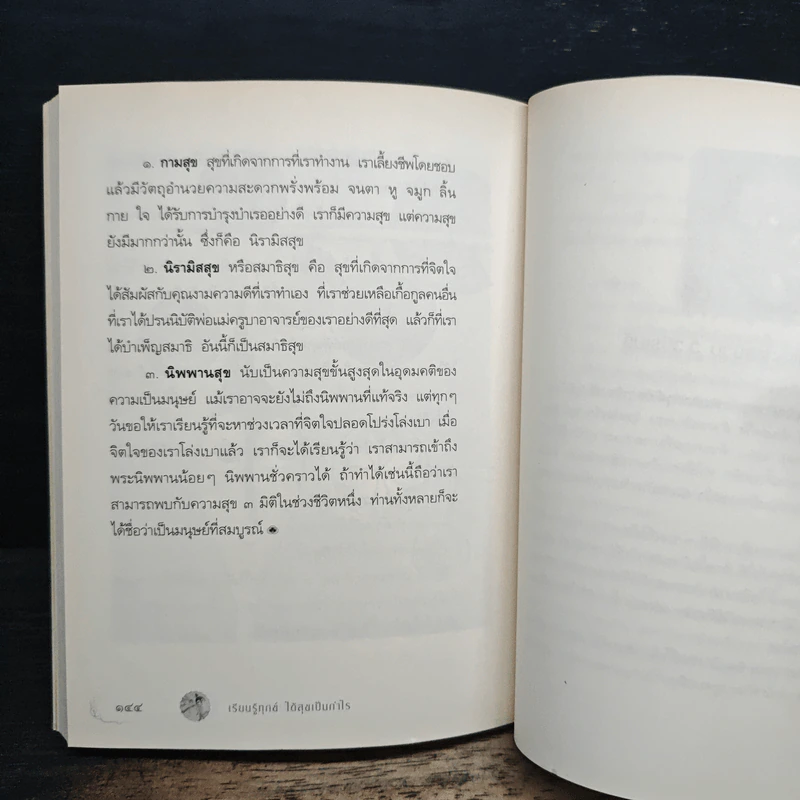 ๑. กามสุข สุขที่เกิดจากการที่เราทำงาน เราเลี้ยงชีพโดยชอบ
แล้วมีวัตถุอำนวยความสะดวกพรั่งพร้อม จนตา หู จมูก ลิ้น
กาย ใจ ได้รับการบำรุงบำเรออย่างดี เราก็มีความสุข แต่ความสุข
ยังมีมากกว่านั้น ซึ่งก็คือ นิรามิสสุข
๒. นิรามิสสุข หรือสมาธิสุข คือ สุขที่เกิดจากการที่จิตใจ
ได้สัมผัสกับคุณงามความดีที่เราทำเอง ที่เราช่วยเหลือเกื้อกูลคนอื่น
ที่เราได้ปรนนิบัติพ่อแม่ครูบาอาจารย์ของเราอย่างดีที่สุด แล้วก็ที่เรา
ได้บำเพ็ญสมาธิ อันนี้ก็เป็นสมาธิสุข
๓. นิพพานสุข นับเป็นความสุขชั้นสูงสุดในอุดมคติของ
ความเป็นมนุษย์ แม้เราอาจจะยังไม่ถึงนิพพานที่แท้จริง แต่ทุกๆ
วันขอให้เราเรียนรู้ที่จะหาช่วงเวลาที่จิตใจปลอดโปร่งโล่งเบา เมื่อ
จิตใจของเราโล่งเบาแล้ว เราก็จะได้เรียนรู้ว่า เราสามารถเข้าถึง
พระนิพพานน้อยๆ นิพพานชั่วคราวได้ ถ้าทำได้เช่นนี้ถือว่าเรา
สามารถพบกับความสุข ๓ มิติในช่วงชีวิตหนึ่ง ท่านทั้งหลายก็จะ
ได้ชื่อว่าเป็นมนุษย์ที่สมบูรณ์
๑๔๔ เรียนรู้ทุกข์ ได้สุขเป็นกำไร